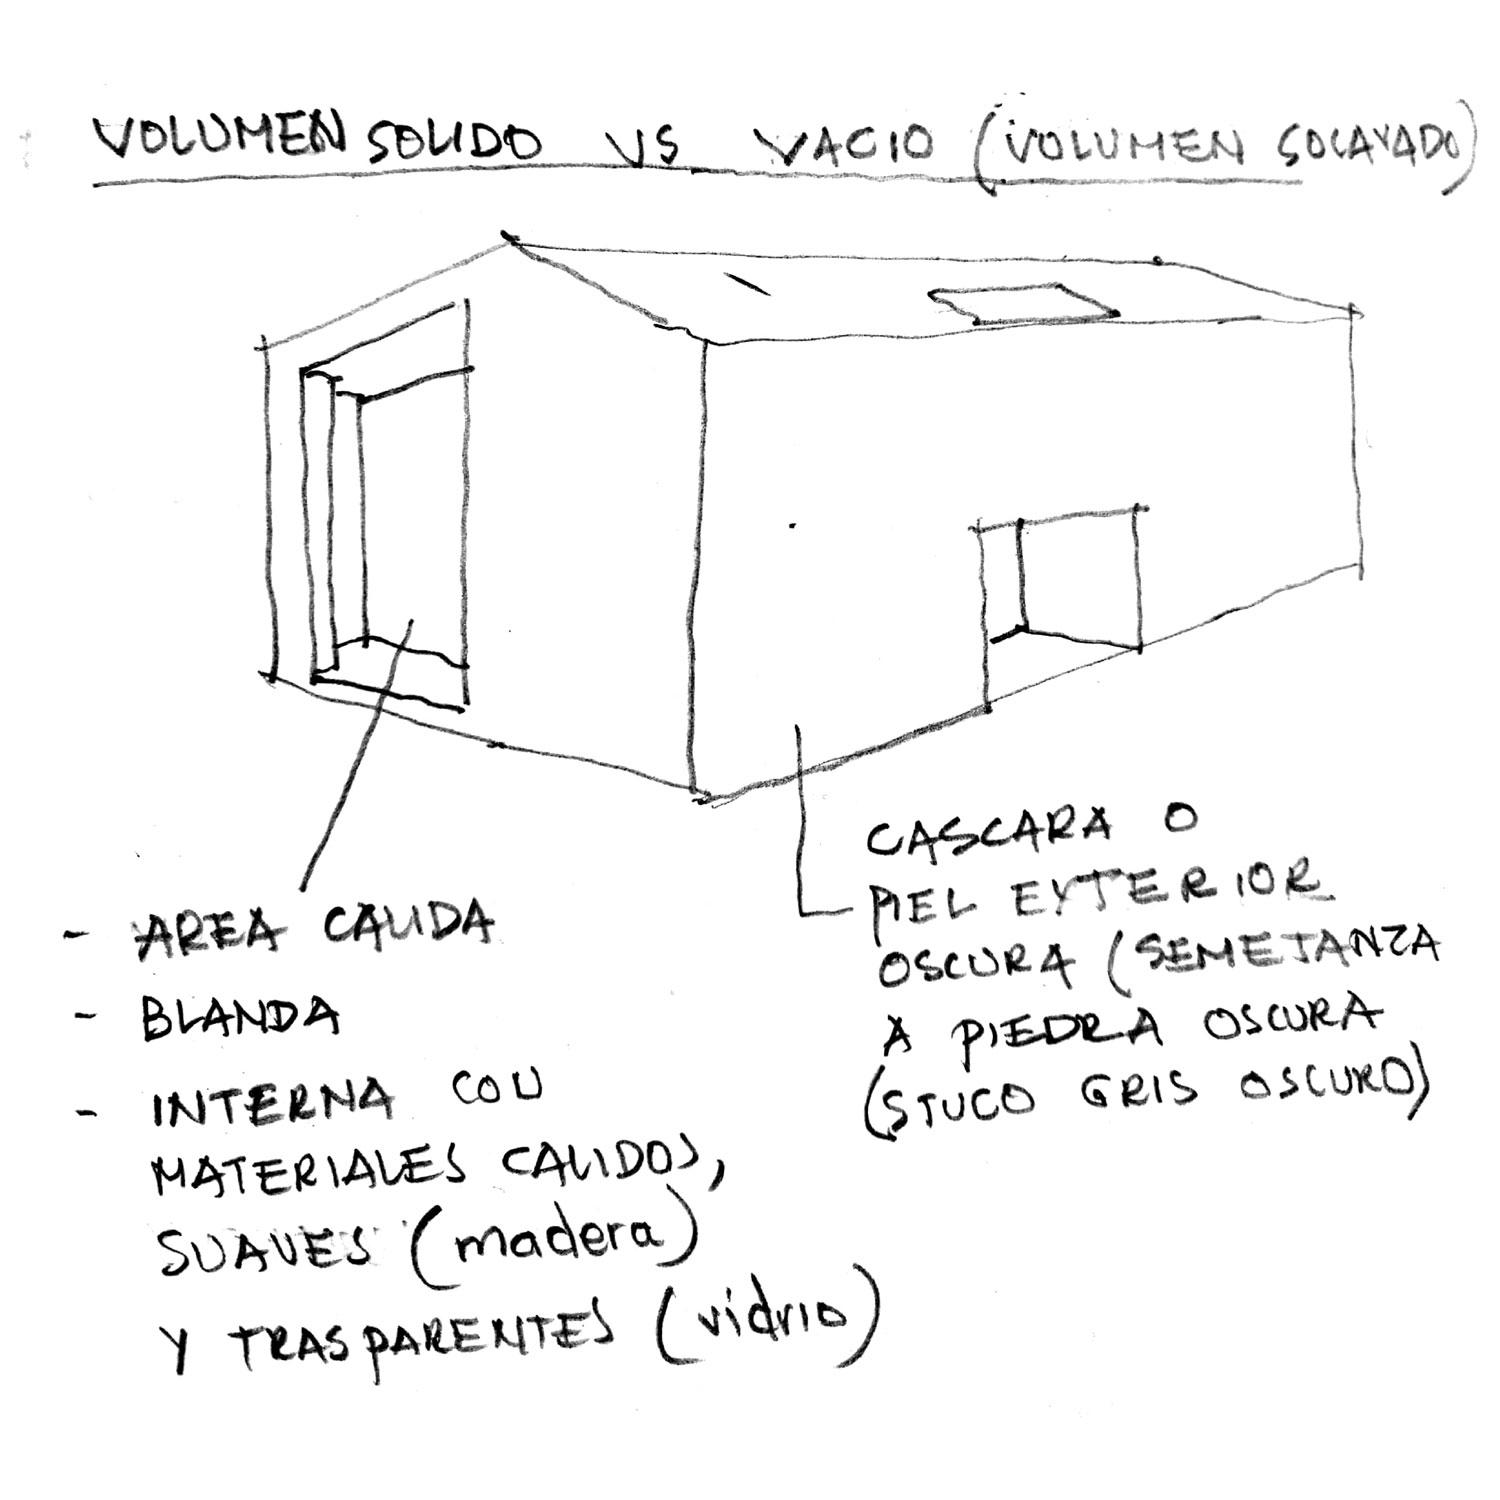 VOLUMEN SOLIDO VS VACIO (VOLUMEN SOCAVADO)
CASCARA O
PIEL EXTERIOR
OSCURA (SEMEJANZA
A PIEDRA OSCURA
(STUCO GRIS OSCURO)
- AREA CALIDA
- BLANDA
- INTERNA CON
MATERIALES CALIDOS,
SUAVES (madera)
Y TRASPARENTES (vidrio)